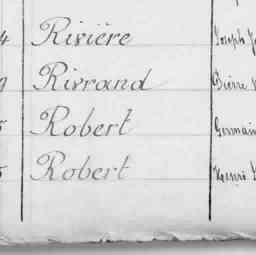 4 Rivière Joseph
Rivrand Pierre
Robert Germain
Robert Henri